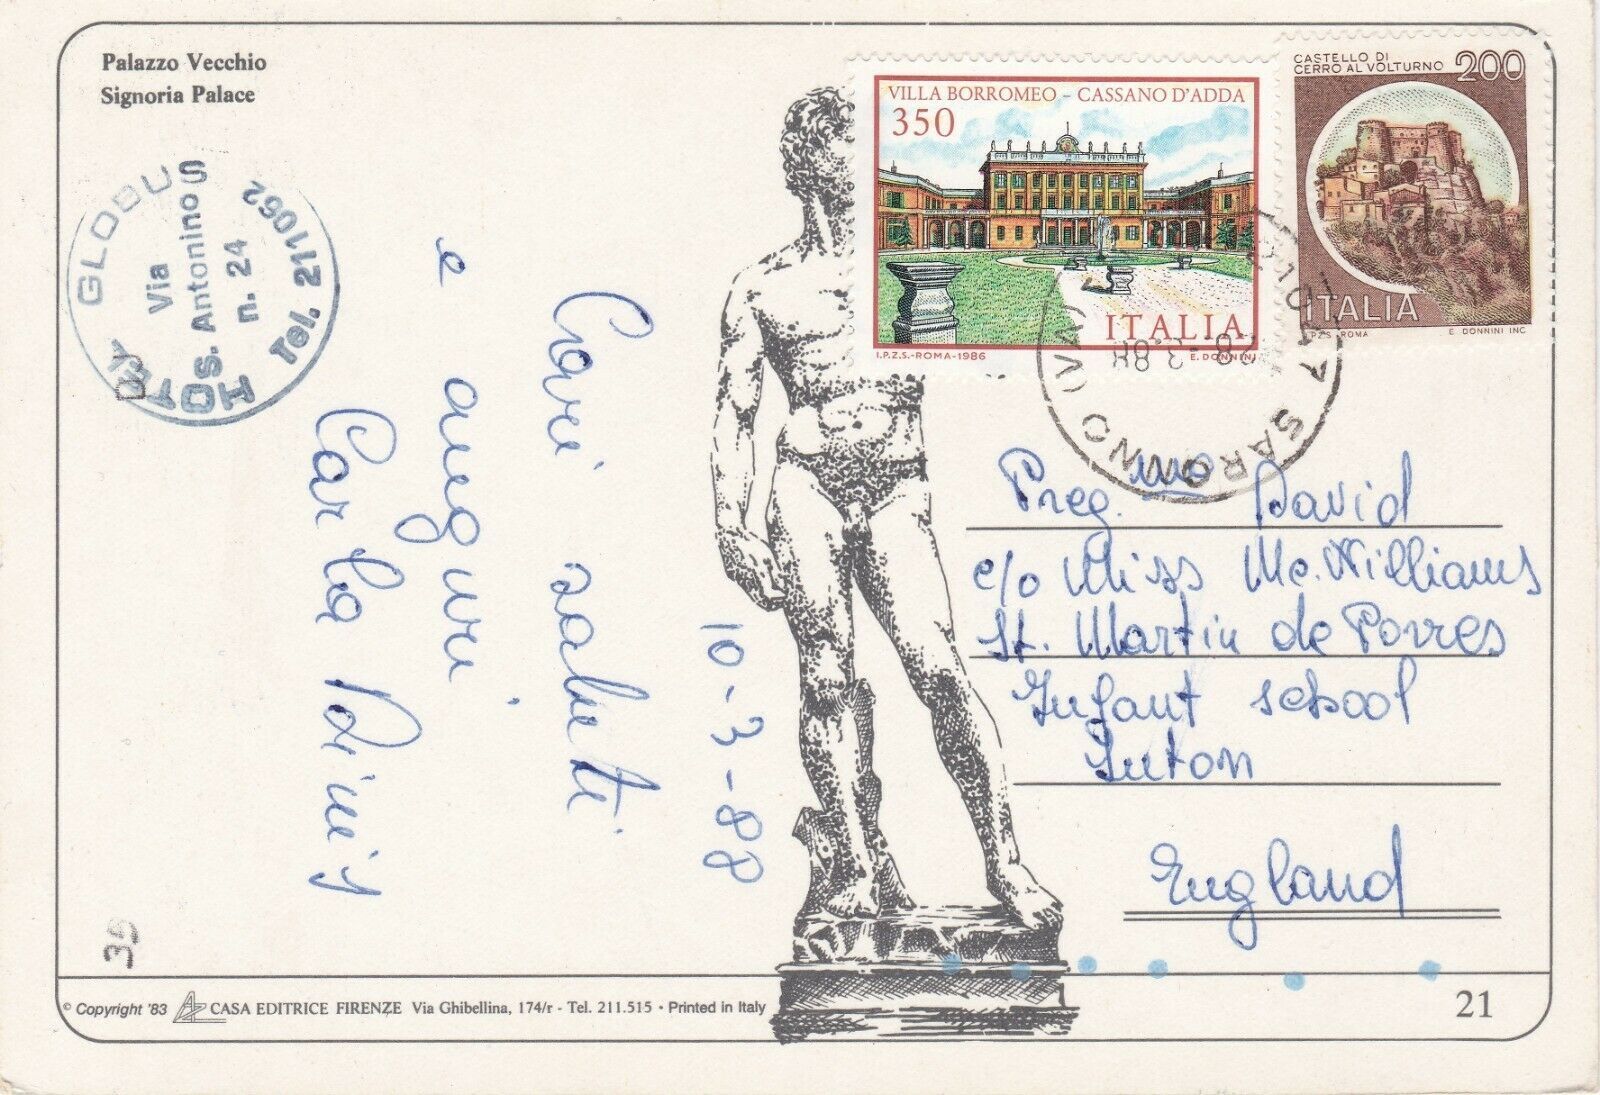 Palazzo Vecchio
Signoria Palace
HOTEL GLOBUS
Via
S. Antonino
n. 24
Tel. 211062
VILLA BORROMEO - CASSANO D'ADDA
350
ITALIA
I.P.Z.S.-ROMA-1986
E. DONNINI
CASTELLO DI
CERRO AL VOLTURNO
200
ITALIA
I.P.Z.S.-ROMA
E. DONNINI INC
SARONNO (VA)
-3.88
10-3-88
Cari saluti
e auguri
Carla
Preg.mo David
c/o Miss Mc. Williams
St. Martin de Porres
Infant school
Luton
England
39
© Copyright '83
CASA EDITRICE FIRENZE Via Ghibellina, 174/r - Tel. 211.515 • Printed in Italy
21